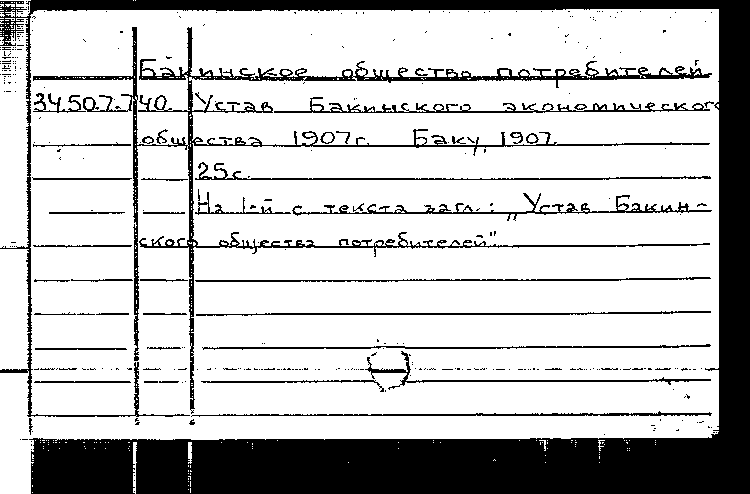 Бакинское общество потребителей
34.50.7.740. Устав Бакинского экономического
общества 1907г. Баку, 1907.
25с.
На 1-й с текста загл.: „Устав Бакин-
ского общества потребителей"